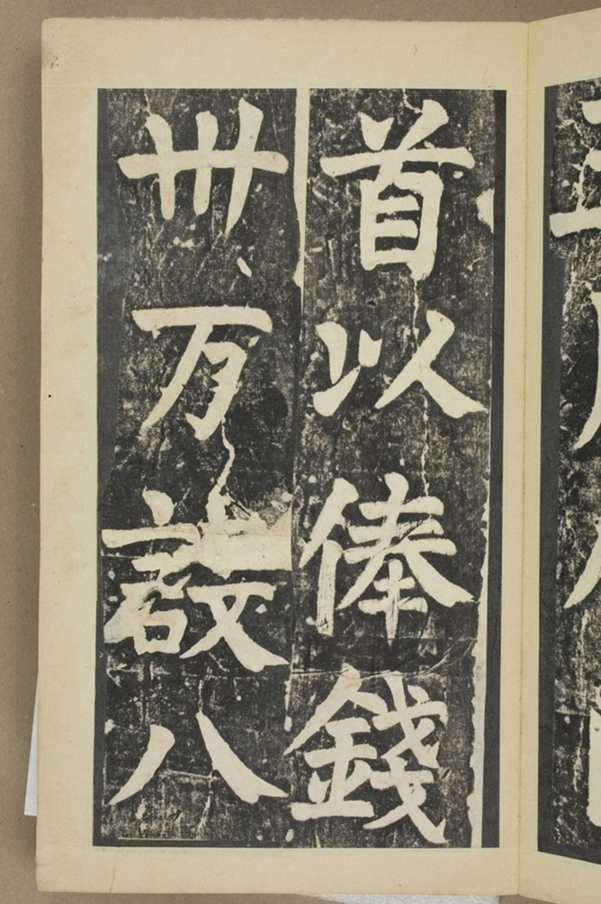 首以俸錢
卅万設八